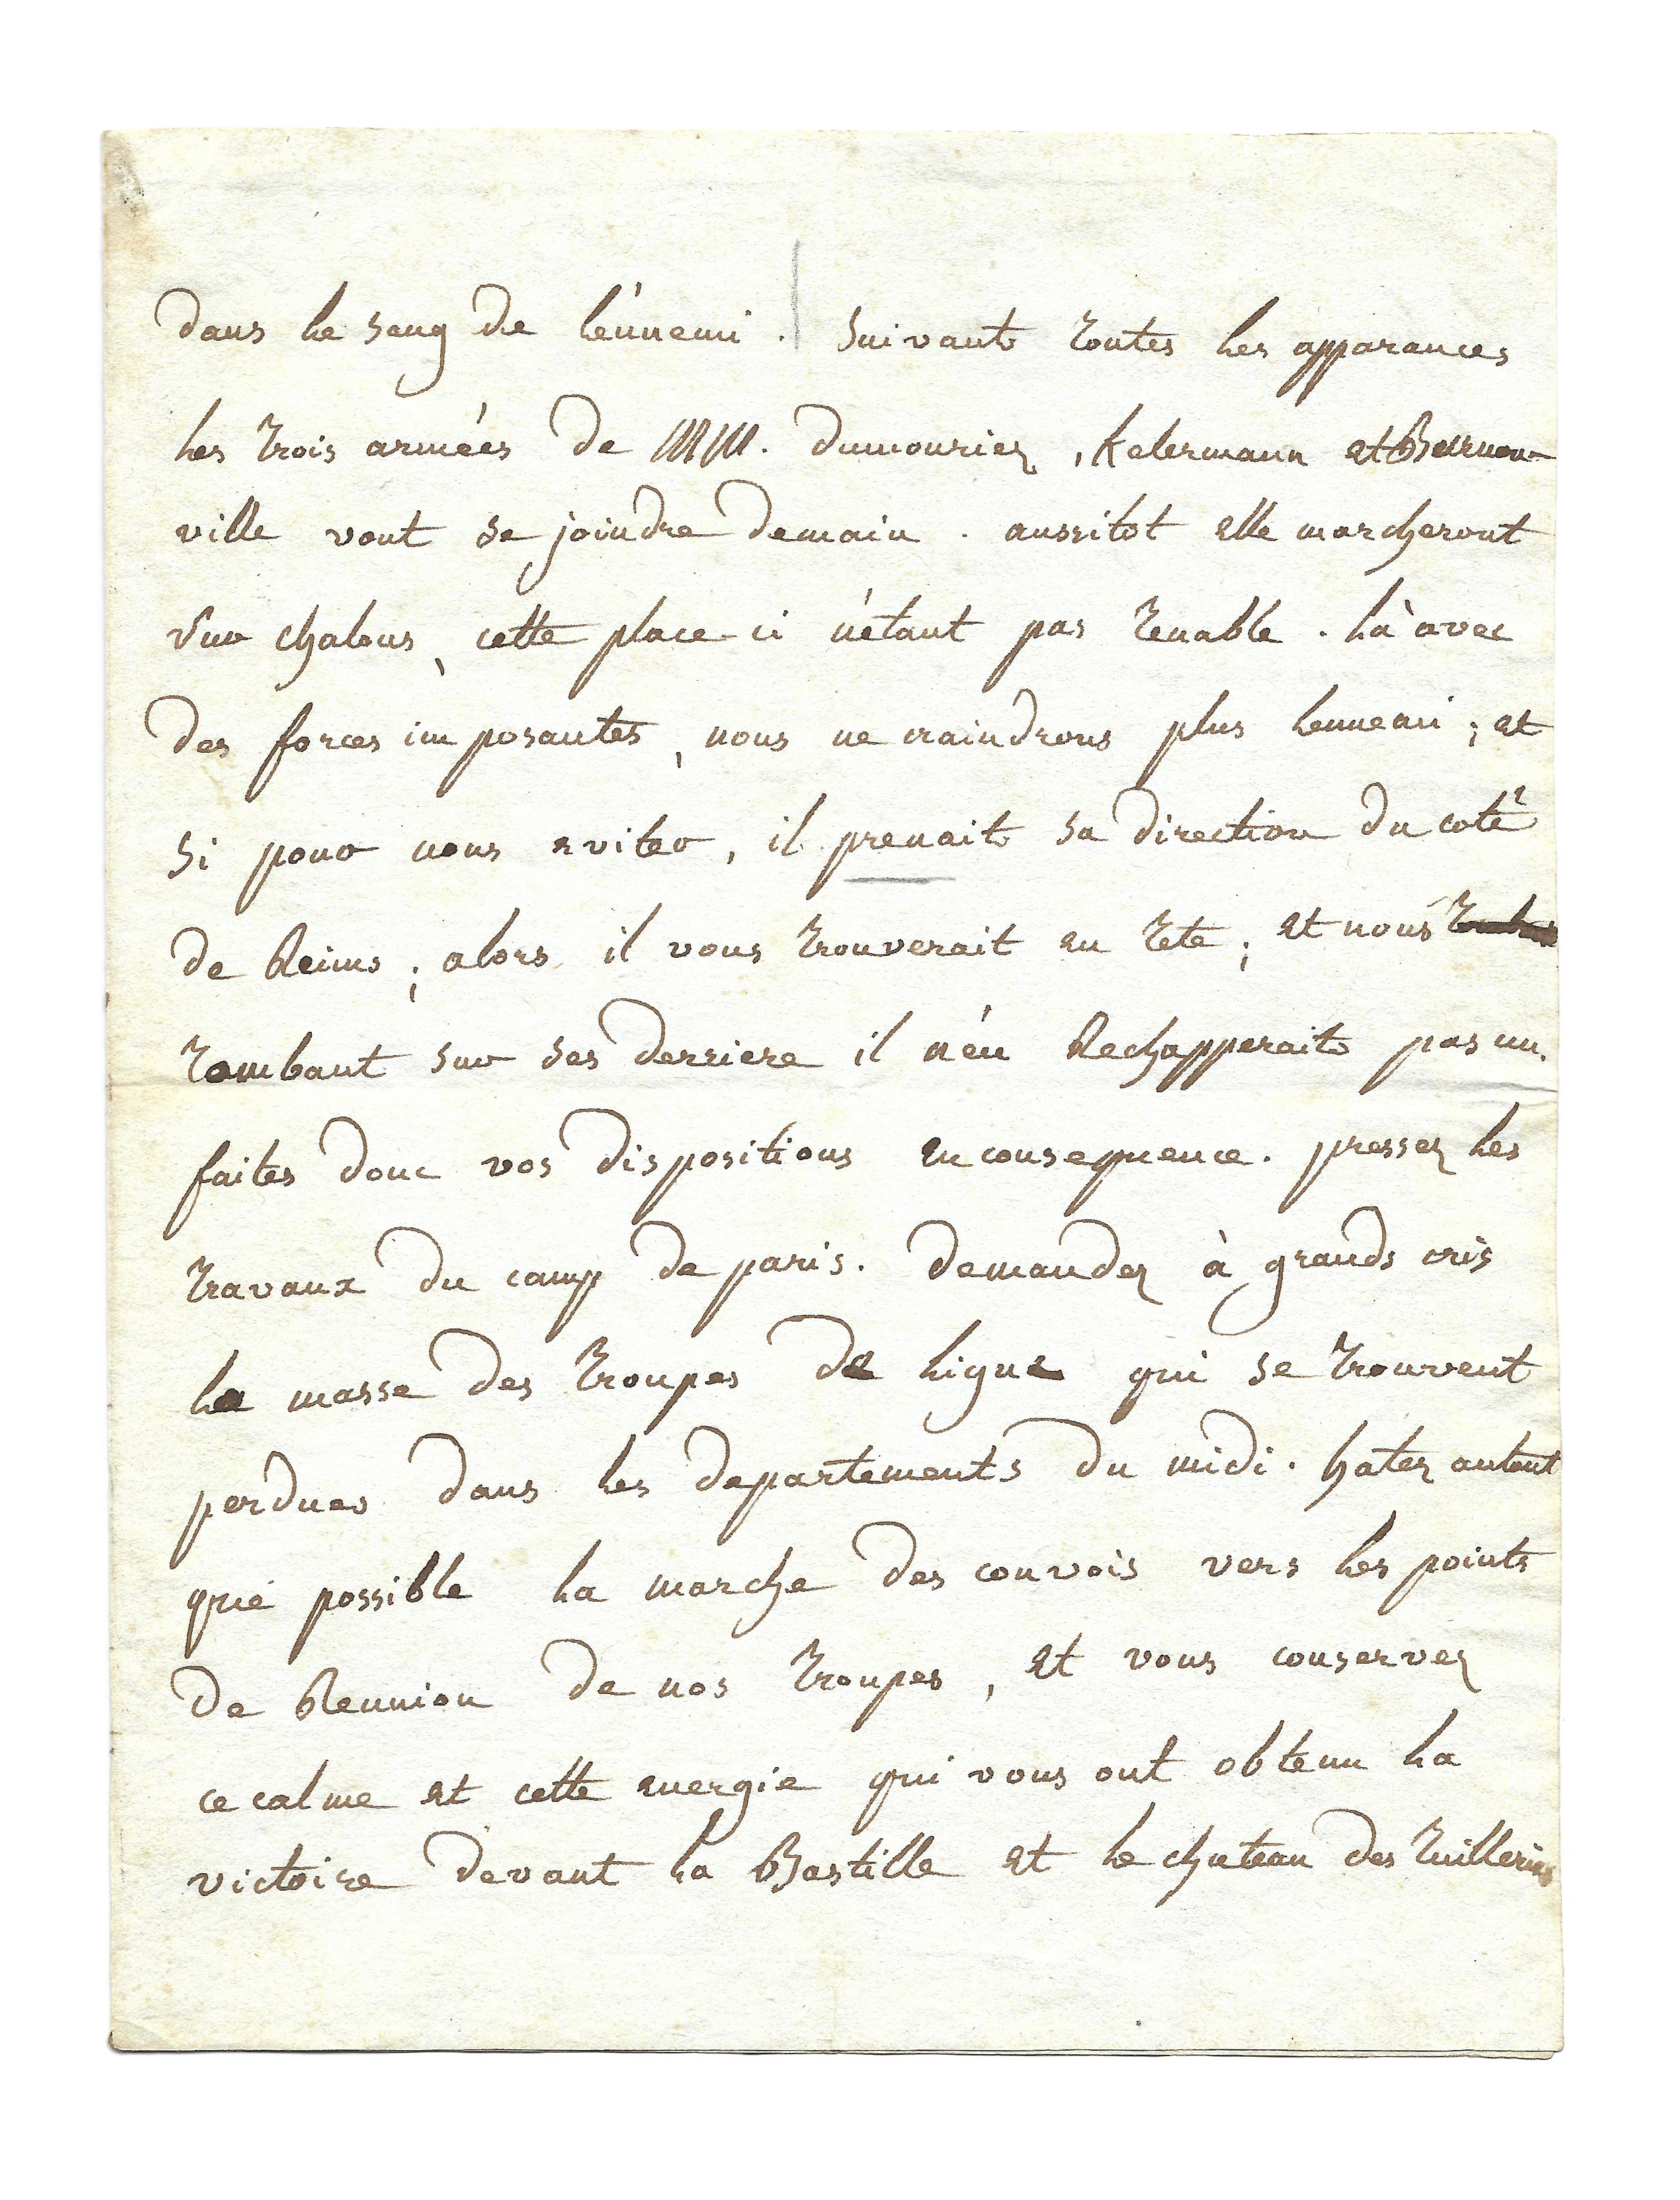 dans le sang de l'énnemi. Suivant toutes les apparances
les trois armées de MM. dumouriez, Kelermann et Beurnon-
ville vont se joindre demain. aussitot elle marcheront
sur chalons, cette place-ci n'étant pas tenable. là avec
des forces imposantes, nous ne craindrons plus lennemi; et
si pour nous eviter, il prenait sa direction du coté
de Reims; alors il vous trouverait en tete; et nous
tombant sur ses derriere il n'en Rechapperait pas un.
faites donc vos dispositions en consequence. pressez les
travaux du camp de paris. demandez à grands cris
la masse des troupes de ligne qui se trouvent
perdues dans les departements du midi. hatez autant
que possible la marche des convois vers les points
de Reunion de nos troupes, et vous conservez
ce calme et cette energie qui vous ont obtenu la
victoire devant la Bastille et le chateau des tuilleries